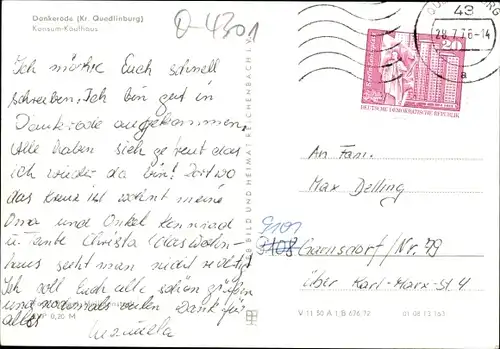 Dankerode (Kr. Quedlinburg)
Konsum-Kaufhaus
D-4301
Ich möchte Euch schnell
schreiben. Ich bin gut in
Dankerode angekommen,
Alle haben sich gefreut das
ich wieder da bin! Dort wo
das Kreuz ist wohnt meine
Oma und Onkel Konrad
u. Tante Christa (das Wohn-
haus sieht man nicht
Ich soll Euch alle schön grüßen
und nochmals vielen Dank für
alles
Manuela
EVP 0,20 M
BILD UND HEIMAT REICHENBACH
43
28.7.76-14
a
20
DEUTSCHE DEMOKRATISCHE REPUBLIK
An Fam.
Max Delling
9101
9108 Garnsdorf/Nr. 79
über Karl-Marx-St. 4
V 11 50 A 1 B 676/72
01 08 13 163